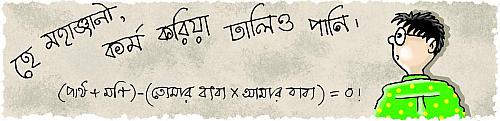 হে মহাজ্ঞানী,
কর্ম করিয়া ঢালিও পানি।
(পার্থ + মনি)-(তোমার বাবা × আমার বাবা) = ০!